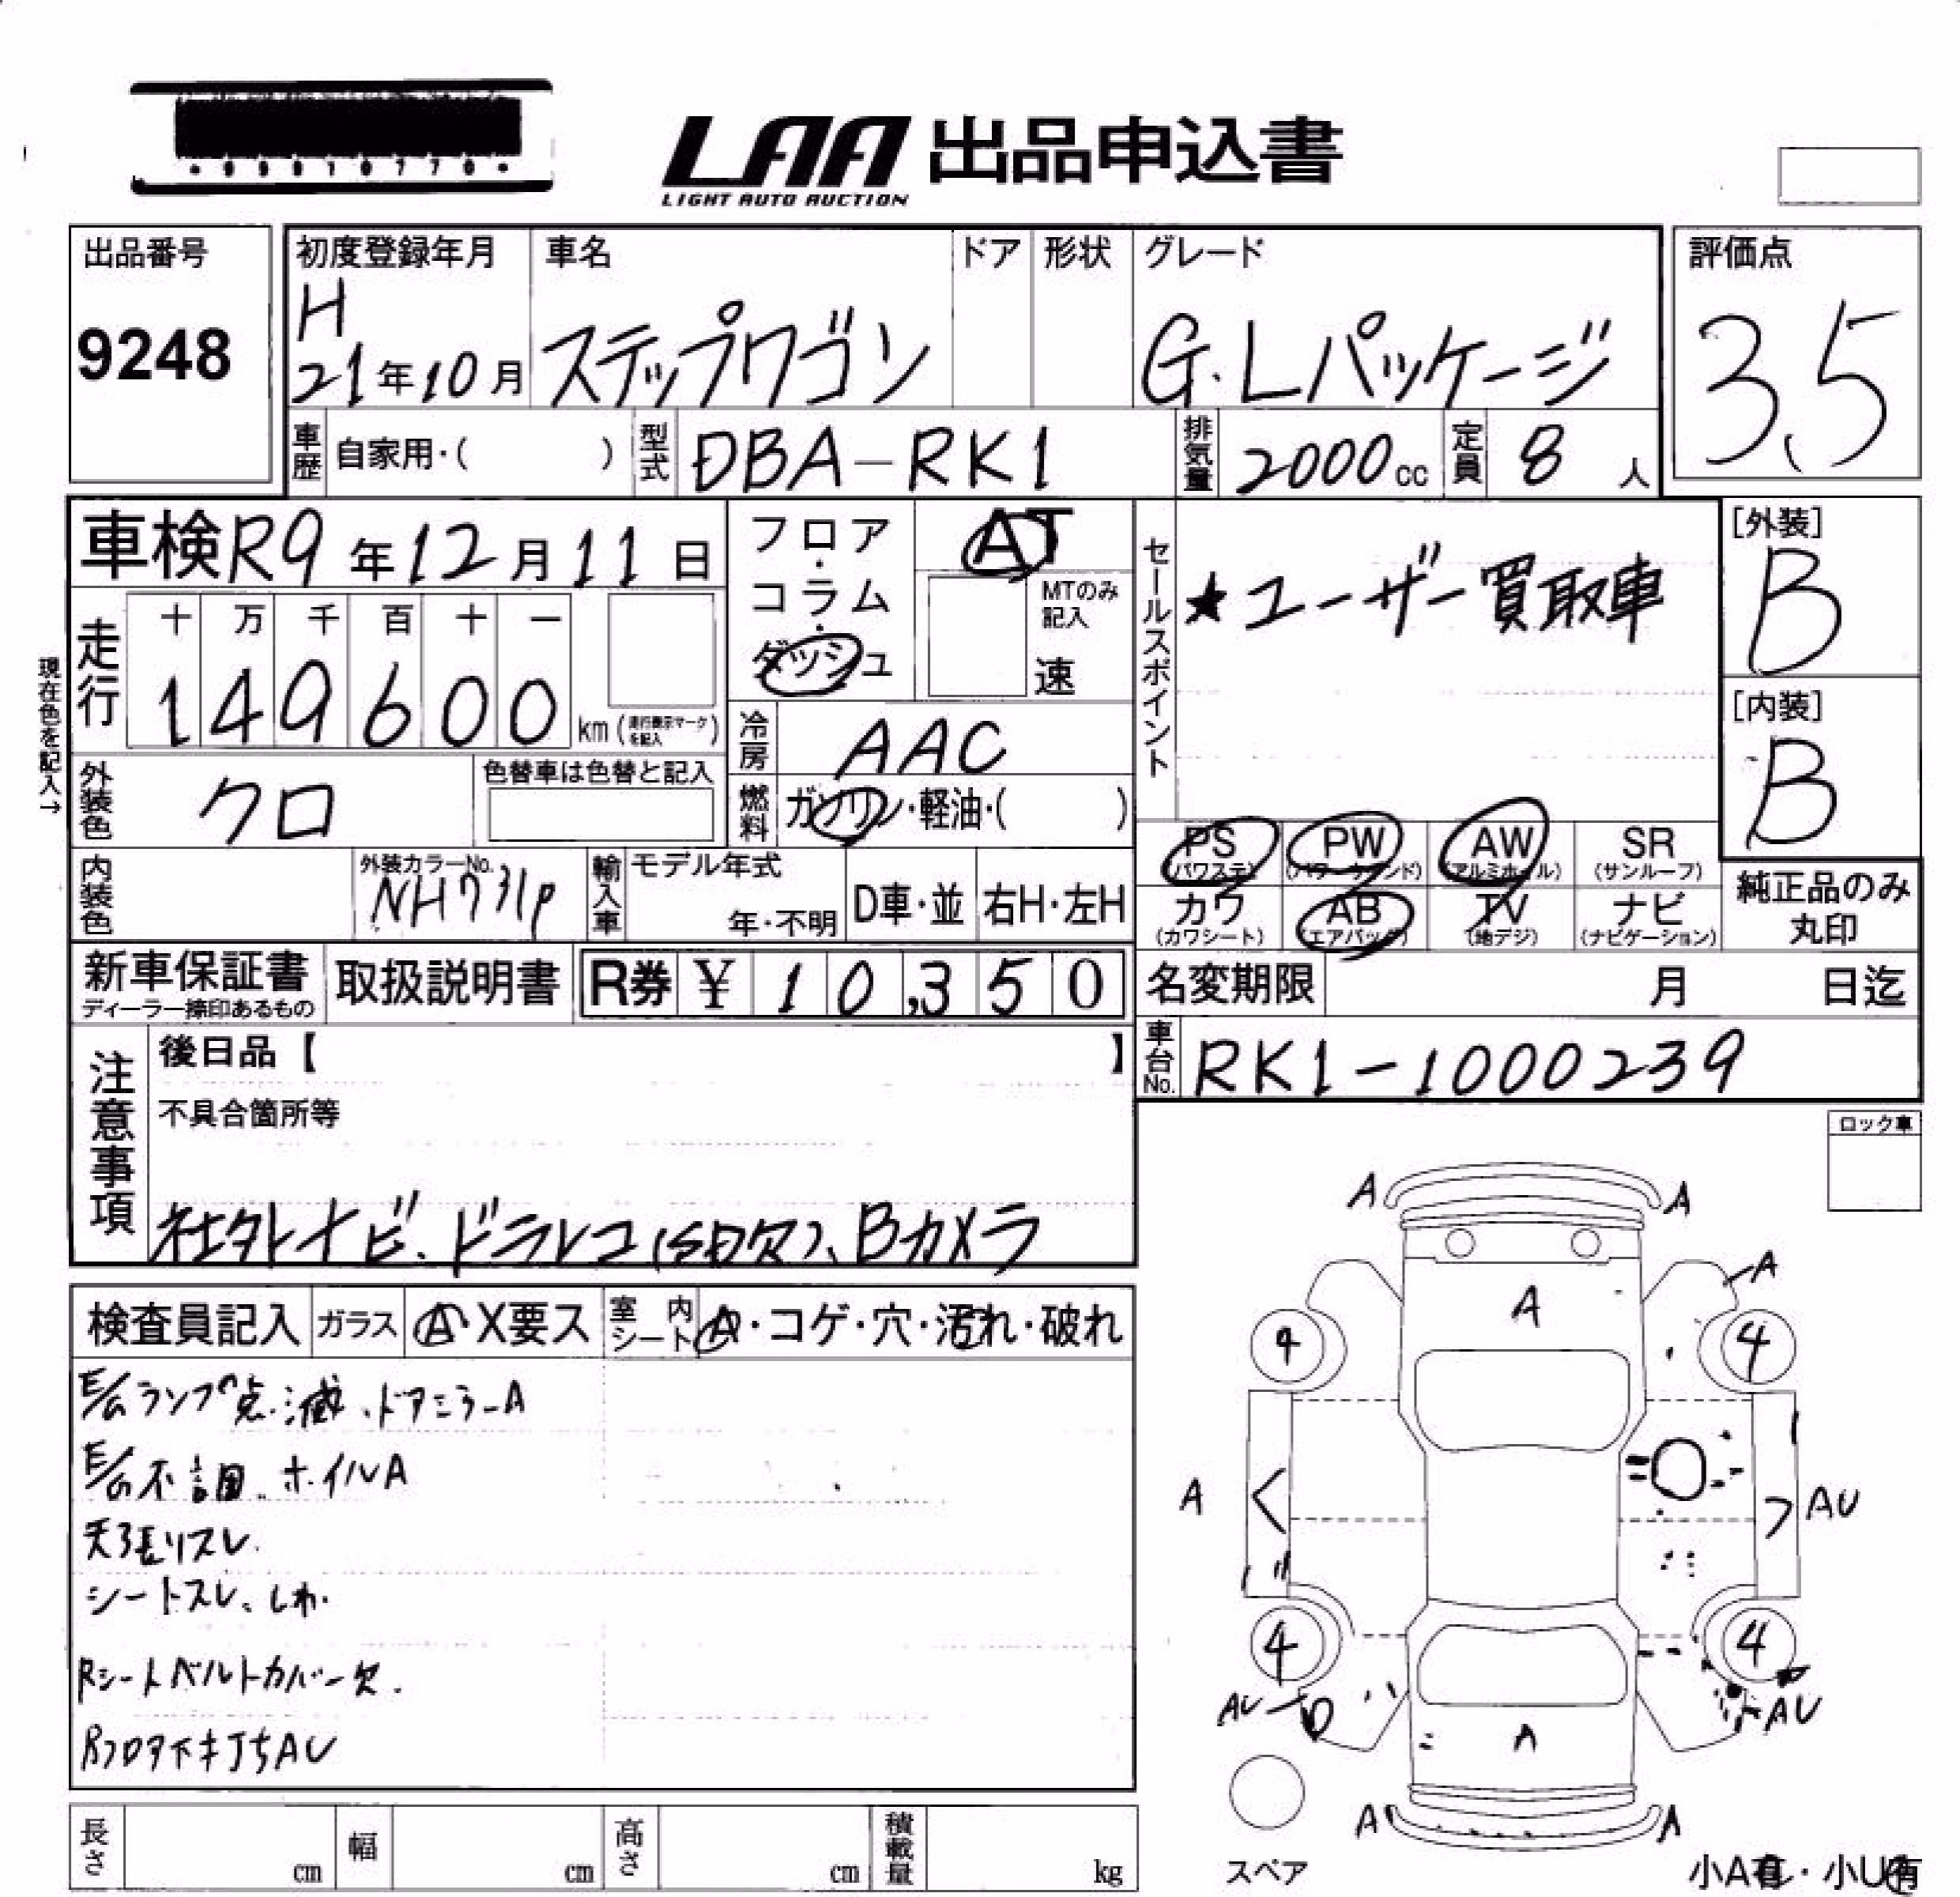 LAA 出品申込書
LIGHT AUTO AUCTION
出品番号
9248
初度登録年月
H
21年10月
車名
ステップワゴン
ドア
形状
グレード
G・Lパッケージ
評価点
3.5
車歴 自家用・( )
型式 DBA-RK1
排気量 2000cc
定員 8人
車検 R9年12月11日
フロア・コラム・ダッシュ
AT
MTのみ記入
速
セールスポイント
★ユーザー買取車
[外装]
B
[内装]
B
現在色を記入→
走行
十 万 千 百 十 一
1 4 9 6 0 0 km (走行表示マークを記入)
冷房 AAC
外装色 クロ
色替車は色替と記入
燃料 ガソリン・軽油・( )
PS (パワステ)
PW (パワーウインド)
AW (アルミホイル)
SR (サンルーフ)
カワ (カワシート)
AB (エアバッグ)
TV (地デジ)
ナビ (ナビゲーション)
純正品のみ丸印
内装色
外装カラーNo.
NH731P
輸入車
モデル年式
年・不明
D車・並
右H・左H
新車保証書
ディーラー捺印あるもの
取扱説明書
R券 ¥ 10,350
名変期限 月 日迄
車台No. RK1-1000239
注意事項
後日品【 】
不具合箇所等
社外ナビ、ドラレコ(SD欠)、Bカメラ
ロック車
検査員記入
ガラス
A・X要ス
室内シート
A・コゲ・穴・汚れ・破れ
E/Gランプ点滅、ドアミラーA
E/G不調、ホイルA
天張リスレ.
シートスレ、しわ.
Rシートベルトカバー欠.
Rフロア下キズAU
A
A
A
A
4
4
A
AU
4
4
AU
AU
A
A
A
スペア
長さ cm
幅 cm
高さ cm
積載量 kg
小A有・小U有